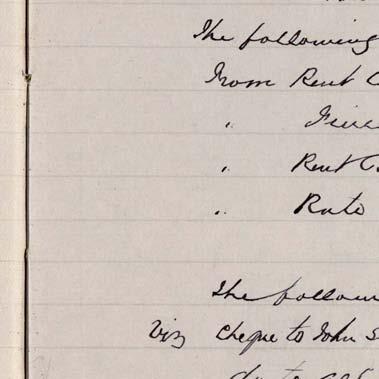 The following
From Rent C
" Fine
" Rent C
" Rate
The follow
Viz cheque to John S